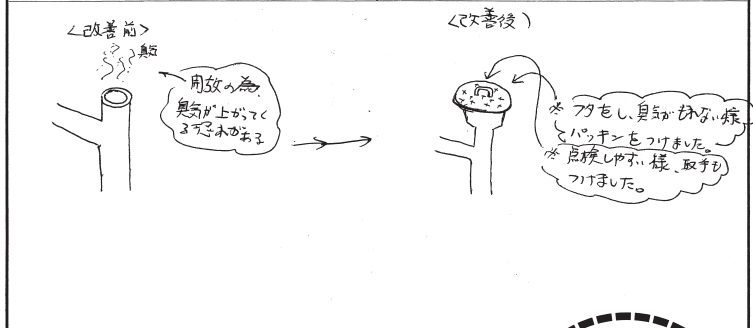 <改善前>
臭気
開放の為、
臭気が上がってく
る恐れがある
<改善後>
※ フタをし、臭気がもれない様、
パッキンをつけました。
※ 点検しやすい様、取手も
つけました。